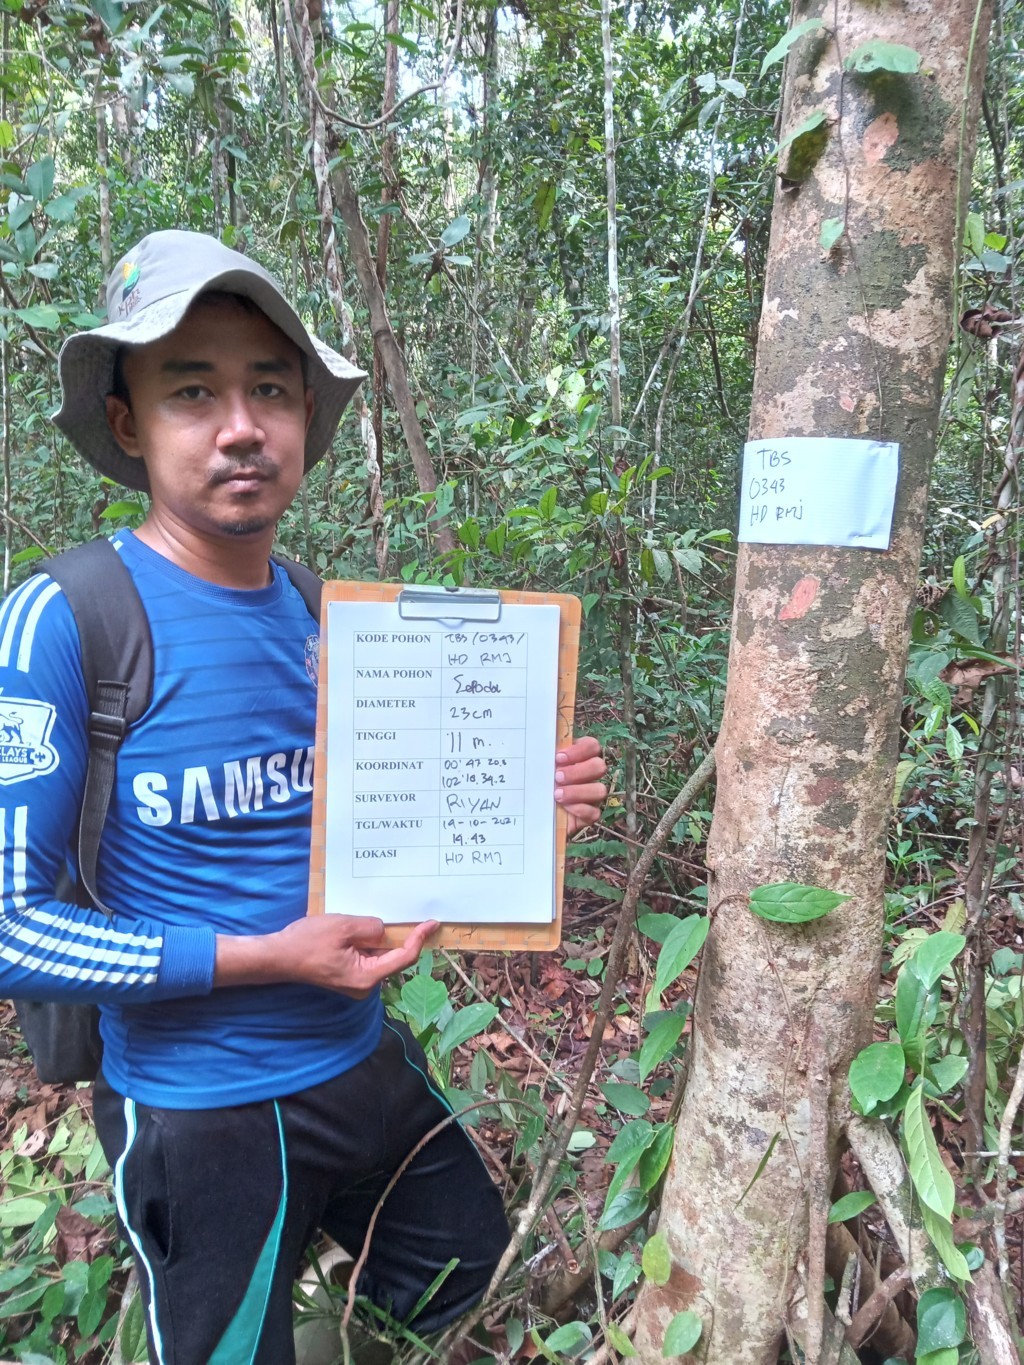 TBS
0343
HD RMJ
KODE POHON TBS/0343/
HD RMJ
NAMA POHON
DIAMETER 23cm
TINGGI 11 m.
KOORDINAT 00°47 20.8
102°18.34.2
SURVEYOR RIYAN
TGL/WAKTU 14-10-2021
14.43
LOKASI HD RMJ
SAMSU
CLAYS
LEAGUE